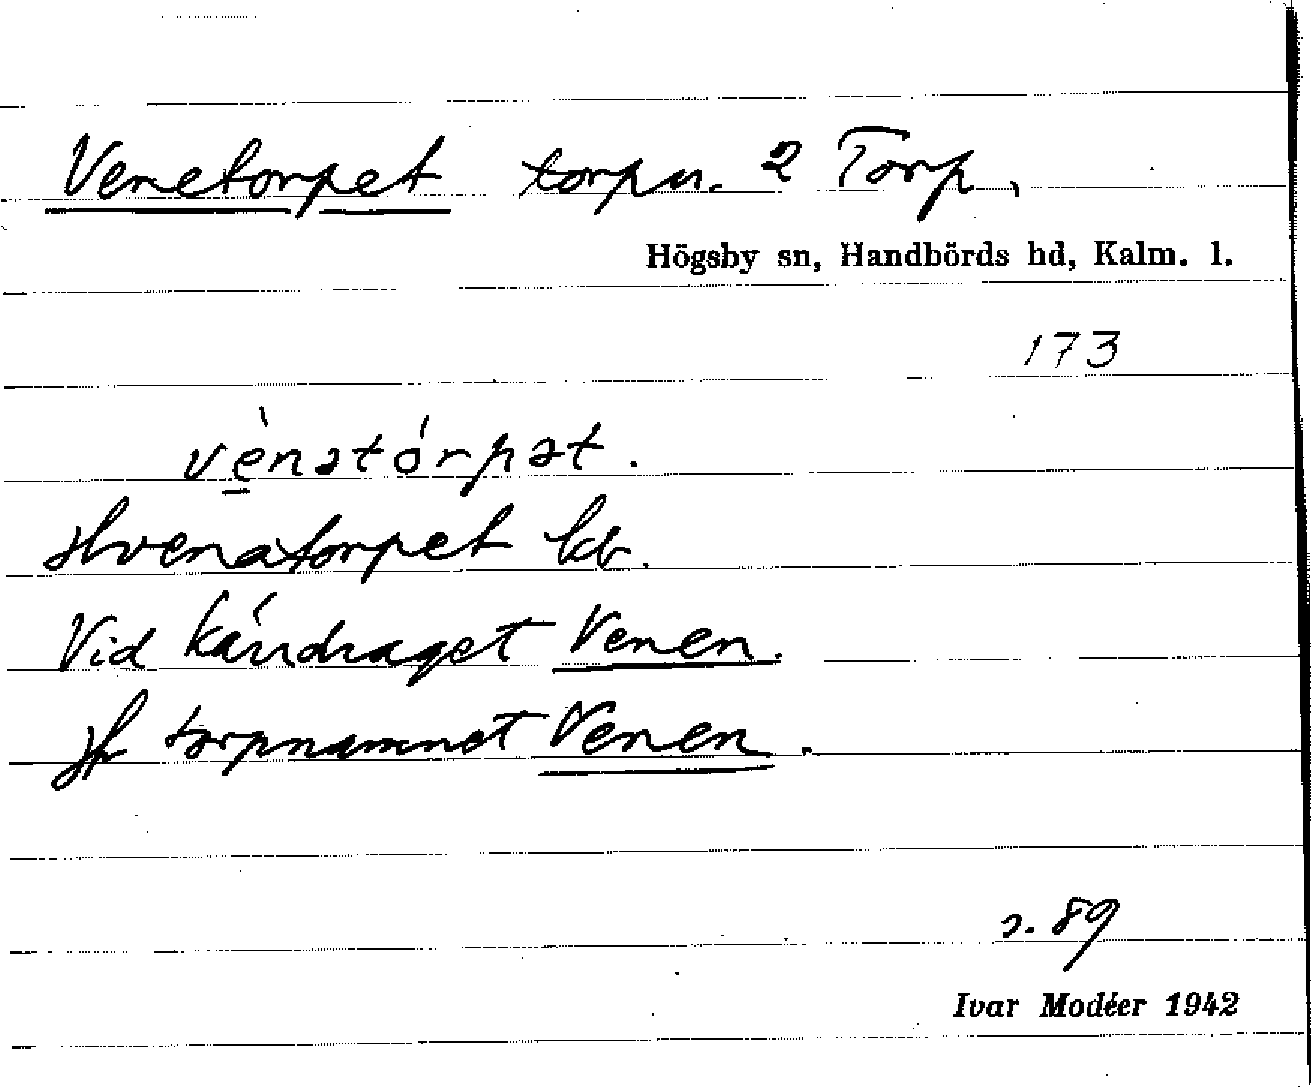 Venetorpet torpn. 2 Torp,
Högsby sn, Handbörds hd, Kalm. l.
173
vènatórpət.
Hvenatorpet kb.
Vid kärrdraget Venen.
Jfr torpnamnet Venen.
s. 89
Ivar Modéer 1942